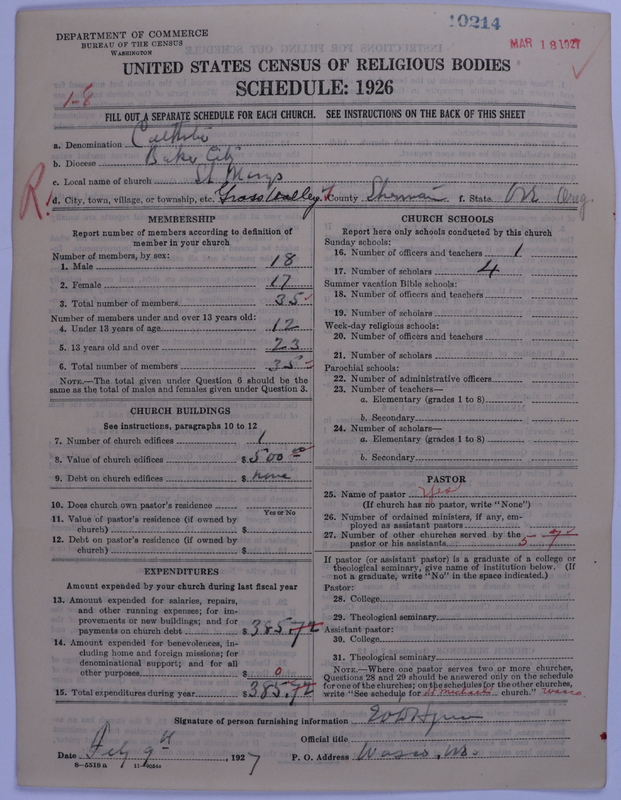 10214
MAR 18 1927
DEPARTMENT OF COMMERCE
BUREAU OF THE CENSUS
WASHINGTON
UNITED STATES CENSUS OF RELIGIOUS BODIES
SCHEDULE: 1926
1-8
FILL OUT A SEPARATE SCHEDULE FOR EACH CHURCH. SEE INSTRUCTIONS ON THE BACK OF THIS SHEET
a. Denomination Catholic
b. Diocese Baker City
c. Local name of church St Marys
R. d. City, town, village, or township, etc. Grass Valley County Sherman f. State Ore
MEMBERSHIP
Report number of members according to definition of
member in your church
Number of members, by sex:
1. Male 18
2. Female 17
3. Total number of members 35
Number of members under and over 13 years old:
4. Under 13 years of age 12
5. 13 years old and over 23
6. Total number of members 35
NOTE.—The total given under Question 6 should be the
same as the total of males and females given under Question 3.
CHURCH BUILDINGS
See instructions, paragraphs 10 to 12
7. Number of church edifices 1
8. Value of church edifices $ 500 00
9. Debt on church edifices $ none
10. Does church own pastor's residence
Yes or No
11. Value of pastor's residence (if owned by
church) $
12. Debt on pastor's residence (if owned by
church) $
EXPENDITURES
Amount expended by your church during last fiscal year
13. Amount expended for salaries, repairs,
and other running expenses; for im-
provements or new buildings; and for
payments on church debt $ 385.72
14. Amount expended for benevolences, in-
cluding home and foreign missions; for
denominational support; and for all
other purposes $ 0
15. Total expenditures during year $ 385.72
CHURCH SCHOOLS
Report here only schools conducted by this church
Sunday schools:
16. Number of officers and teachers 1
17. Number of scholars 4
Summer vacation Bible schools:
18. Number of officers and teachers
19. Number of scholars
Week-day religious schools:
20. Number of officers and teachers
21. Number of scholars
Parochial schools:
22. Number of administrative officers
23. Number of teachers—
a. Elementary (grades 1 to 8)
b. Secondary
24. Number of scholars—
a. Elementary (grades 1 to 8)
b. Secondary
PASTOR
25. Name of pastor Yes
(If church has no pastor, write "None")
26. Number of ordained ministers, if any, em-
ployed as assistant pastors
27. Number of other churches served by the
pastor or his assistants 5
If pastor (or assistant pastor) is a graduate of a college or
theological seminary, give name of institution below. (If
not a graduate, write "No" in the space indicated.)
Pastor:
28. College
29. Theological seminary
Assistant pastor:
30. College
31. Theological seminary
NOTE.—Where one pastor serves two or more churches,
Questions 28 and 29 should be answered only on the schedule
for one of the churches; on the schedules for the other churches,
write "See schedule for St Michaels church." Wasco
Signature of person furnishing information
Official title
Date Feby 9th, 1927 P. O. Address Wasco, Ore.
8—5518 a